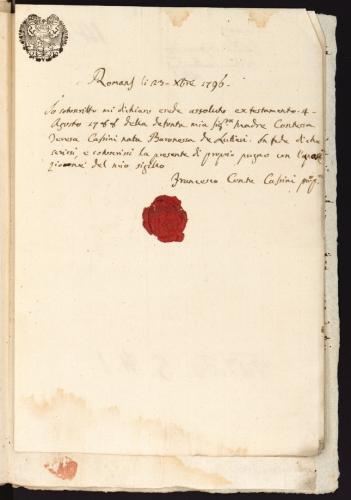 Romans li 23 Xbre 1796
Io sotoscritto mi dichiaro erede assoluto ex testamento 4
Agosto 1788 della defonta mia sig.ra Madre Contessa
Teresa Cassini nata Baronessa de In fede di che
scrissi, e sotoscrissi la presente di proprio pugno con l'
del mio sigillo
Francesco Conte Cassini